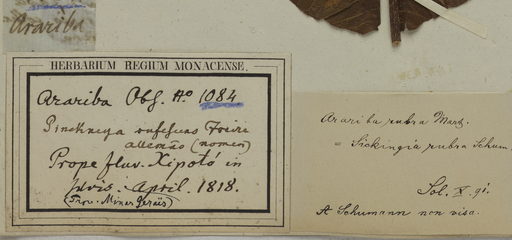 Arariba
HERBARIUM REGIUM MONACENSE.
Arariba Obs. No 1084
Pinckneya rufescens Freire
allemão (nomen)
Prope fluv. Xipotó in
sylvis: April. 1818.
(Prov. Minas Geraës)
Arariba rubra Mart.
= Sickingia rubra Schum.
Sol. X. 91.
A Schumann non visa.